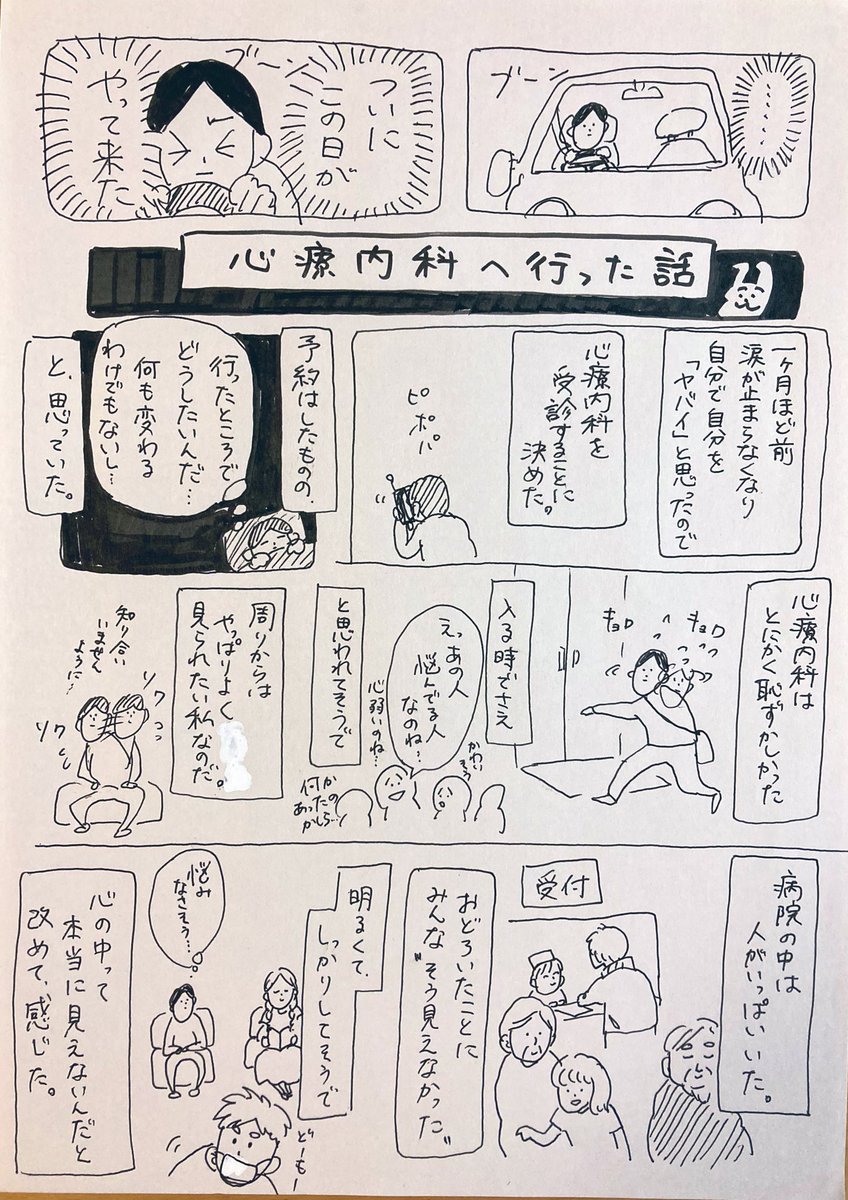 ブーン
……
ついに
この日が
やって来た
ブーン
心療内科へ行った話
一ヶ月ほど前
涙が止まらなくなり
自分で自分を
「ヤバイ」と思ったので
心療内科を
受診することに
決めた。
ピポパ
予約はしたものの、
行ったところで
どうしたいんだ…
何も変わる
わけでもないし…
と、思っていた。
心療内科は
とにかく恥ずかしかった
キョロ
キョロ
入る時でさえ
えっあの人
悩んでる人
なのね…
心弱いのね…
かわいそう
何か
あったの
かしら…
と思われてそうで
周りからは
やっぱりよく
見られたい私なのだ。
知り合い
いません
ように…
ソワ
ソワ
病院の中は
人がいっぱいいた。
受付
おどろいたことに
みんな"そう見えなかった"
明るくて、
しっかりしてそうで
どーもー
悩み
なさそう…
心の中って
本当に見えないんだと
改めて、感じた。